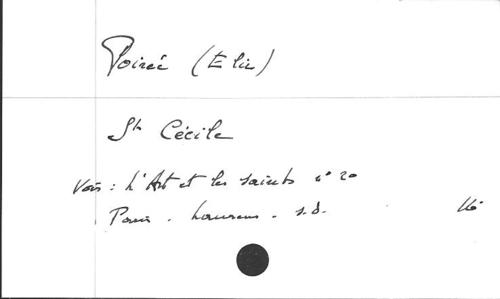 Poirée (Elie)
Ste Cécile
Voir : L'Art et les saints n° 20
Paris . Laurens . s.d.